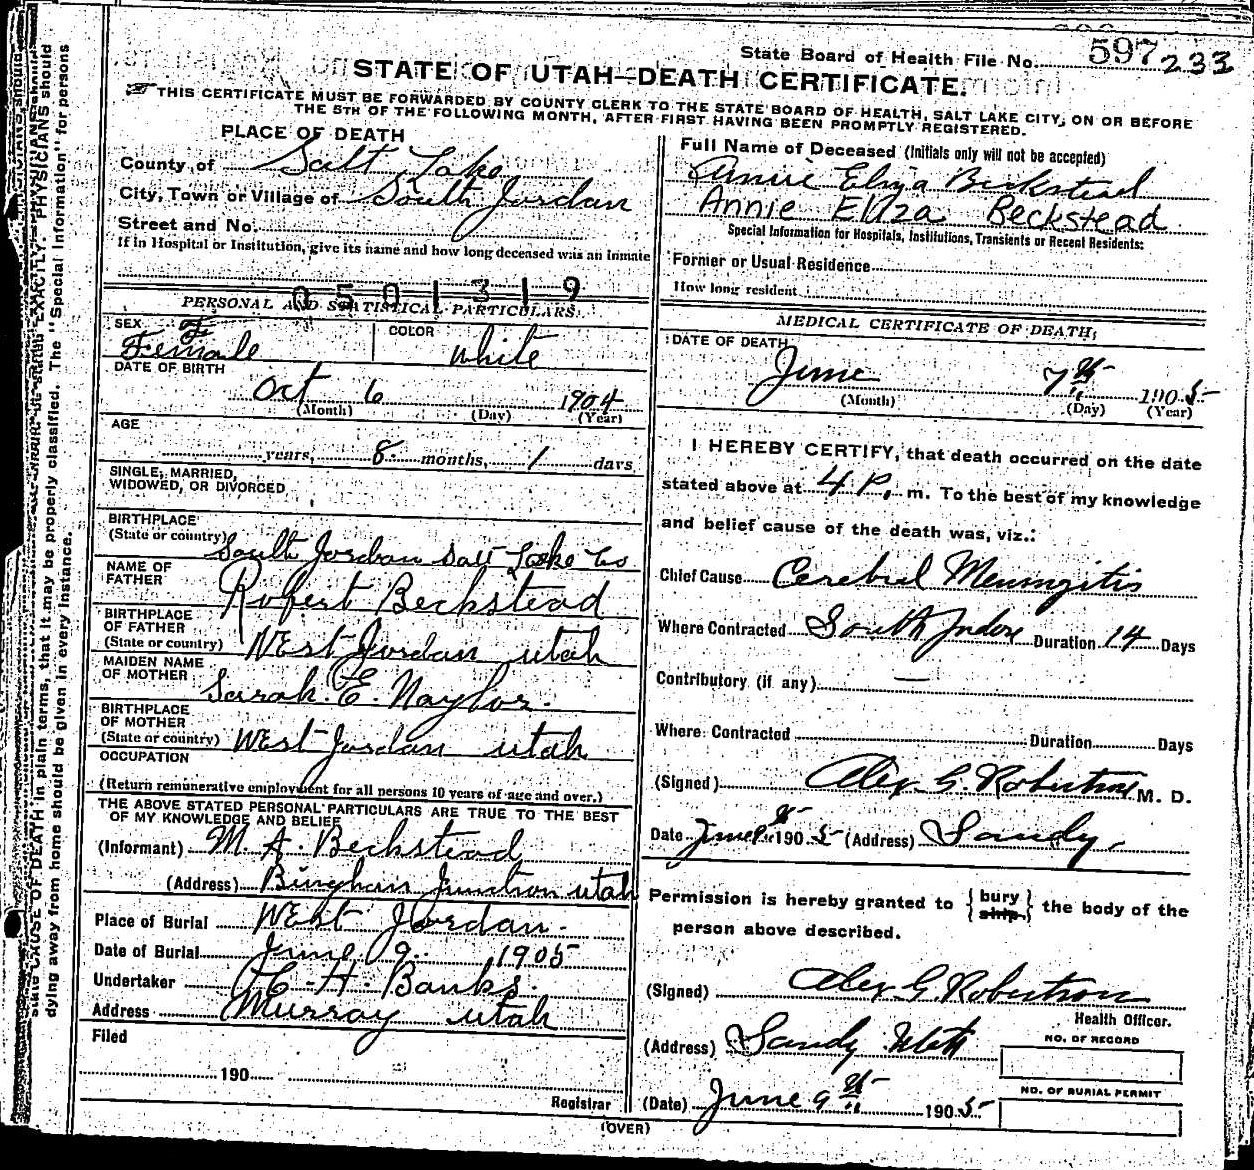 State Board of Health File No. 597 233
STATE OF UTAH—DEATH CERTIFICATE.
THIS CERTIFICATE MUST BE FORWARDED BY COUNTY CLERK TO THE STATE BOARD OF HEALTH, SALT LAKE CITY, ON OR BEFORE
THE 5TH OF THE FOLLOWING MONTH, AFTER FIRST HAVING BEEN PROMPTLY REGISTERED.
PLACE OF DEATH
County of Salt Lake
City, Town or Village of South Jordan
Street and No.
If in Hospital or Institution, give its name and how long deceased was an inmate
0501319
PERSONAL AND STATISTICAL PARTICULARS.
SEX F COLOR
Female white
DATE OF BIRTH
Oct 6 1904
(Month) (Day) (Year)
AGE
years, 8 months, 1 days
SINGLE, MARRIED,
WIDOWED, OR DIVORCED
BIRTHPLACE
(State or country) South Jordan Salt Lake Co
NAME OF
FATHER Robert Beckstead
BIRTHPLACE
OF FATHER
(State or country) West Jordan utah
MAIDEN NAME
OF MOTHER Sarah. E. Naylor.
BIRTHPLACE
OF MOTHER
(State or country) West Jordan utah
OCCUPATION
(Return remunerative employment for all persons 10 years of age and over.)
THE ABOVE STATED PERSONAL PARTICULARS ARE TRUE TO THE BEST
OF MY KNOWLEDGE AND BELIEF
(Informant) M. A. Beckstead
(Address) Bingham Junction utah
Place of Burial West Jordan.
Date of Burial June 9. 1905
Undertaker H. Banks.
Address Murray utah
Filed
190
Registrar
Full Name of Deceased (Initials only will not be accepted)
Annie Eliza Beckstead
Annie Eliza Beckstead
Special Information for Hospitals, Institutions, Transients or Recent Residents:
Former or Usual Residence
How long resident
MEDICAL CERTIFICATE OF DEATH;
DATE OF DEATH
June 7th 1905
(Month) (Day) (Year)
I HEREBY CERTIFY, that death occurred on the date
stated above at 4 P. m. To the best of my knowledge
and belief cause of the death was, viz.:
Chief Cause Cerebral Meningitis
Where Contracted South Duration 14 Days
Contributory (if any) —
Where Contracted Duration Days
(Signed) Alex. G. Robertson M. D.
Date June 9th 1905 (Address) Sandy.
Permission is hereby granted to { bury ship. } the body of the
person above described.
(Signed) Alex. G. Robertson
Health Officer.
(Address) Sandy Utah
NO. OF RECORD
NO. OF BURIAL PERMIT
(Date) June 9th 1905
(OVER)
CAUSE OF DEATH in plain terms, that it may be properly classified. The "Special Information" for persons
dying away from home should be given in every instance.
EXACTLY. PHYSICIANS should